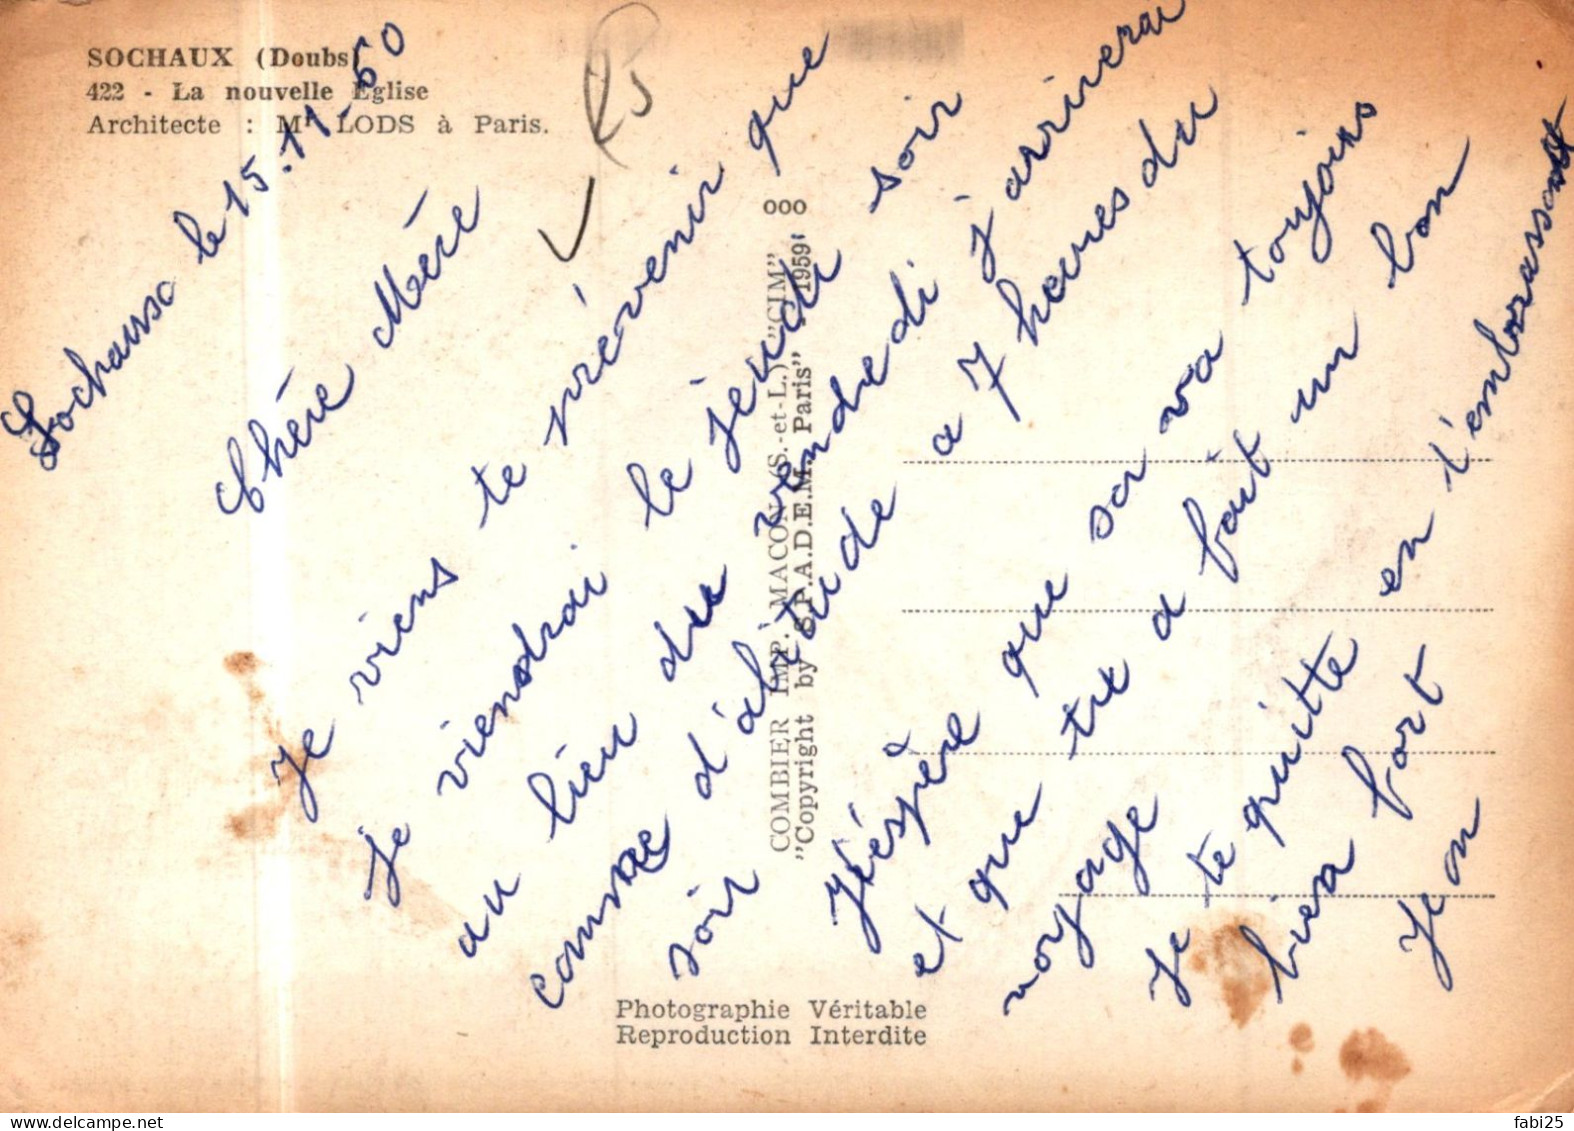 SOCHAUX (Doubs)
422 - La nouvelle Eglise
Architecte : Mr LODS à Paris.
25
Sochaux le 15.11-60
Chère Mère
Je viens te prévenir que
Je viendrai le jeudi soir
au lieu du vendredi j'arriverai
comme d'abitude a 7 heures du
soir
J'éspère que sa va toujoirs
et que tu a fait un bon
voyage
Je te quitte en t'embrassant
bien fort
Jean
ooo
COMBIER IMP. MACON (S.-et-L.) "CIM"
"Copyright by S.P.A.D.E.M. Paris" 1959
Photographie Véritable
Reproduction Interdite
fabi25